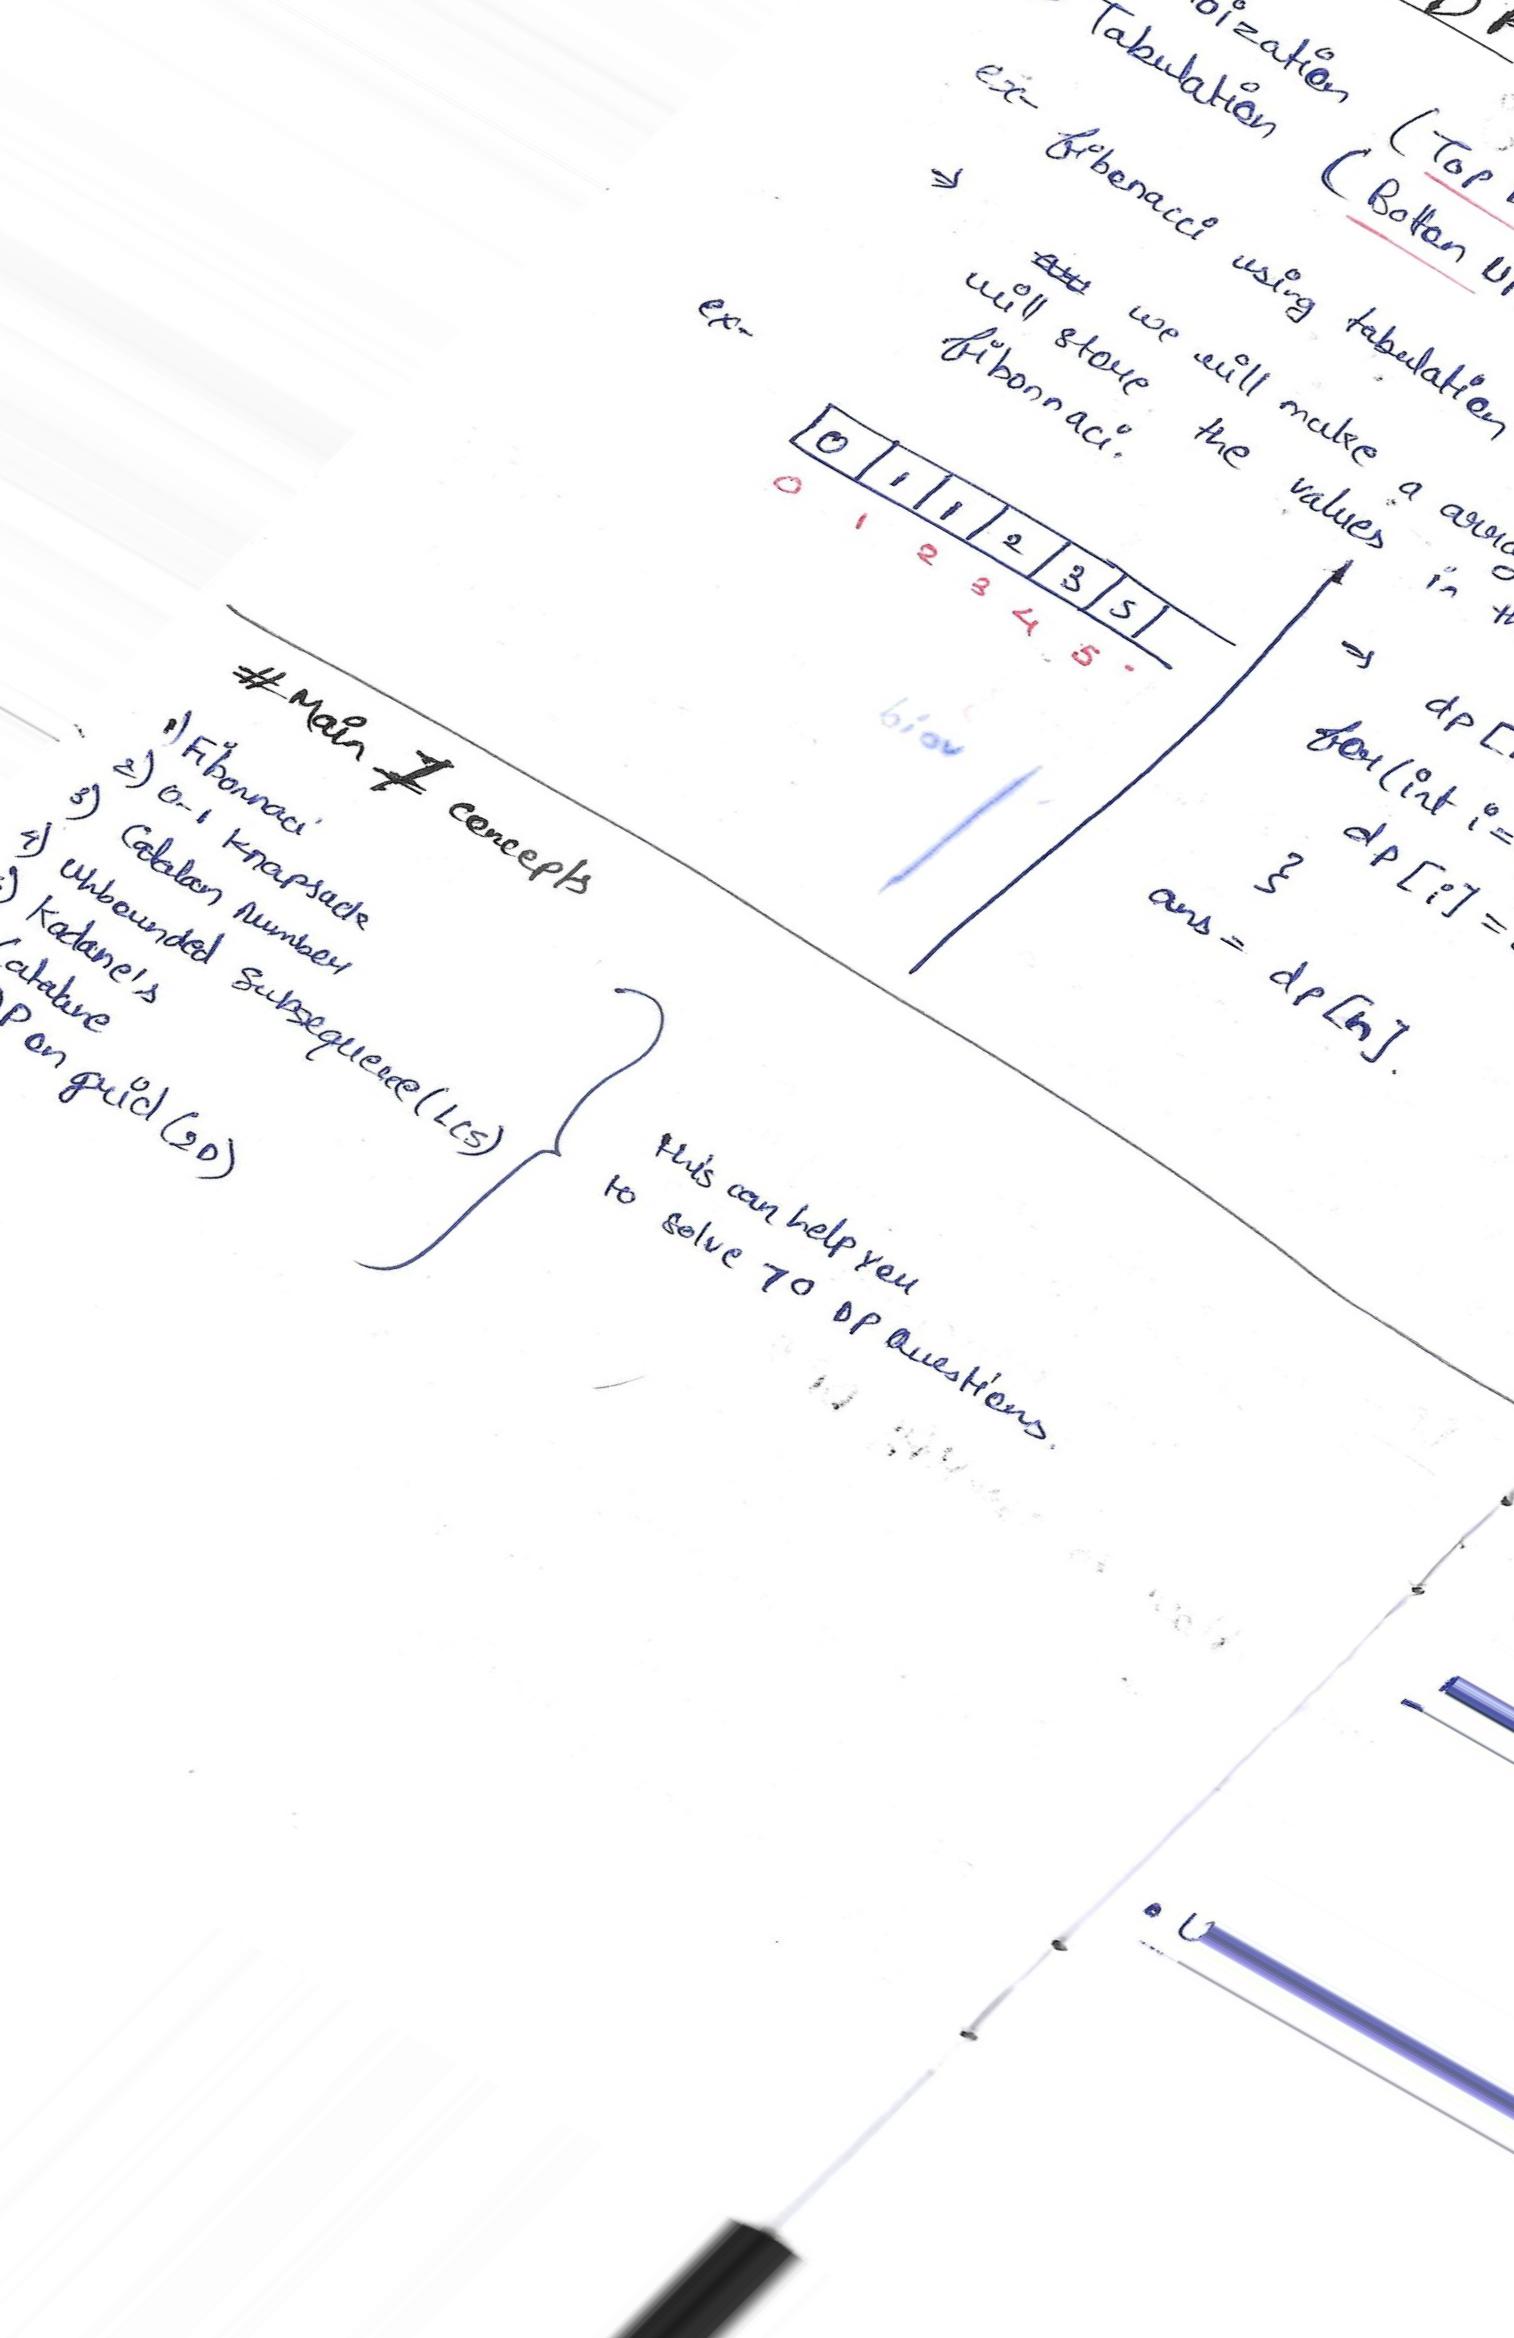 DP
Tabulation (Top
(Bottom UP
ex- fibonacci using tabulation
⇒ we will make a array
will store the values in th
fibonnaci.
ex-
0 1 1 2 3 5
0 1 2 3 4 5
⇒ dp[
for(int i=
dp[i] =
}
ans = dp[n].
# Main 7 concepts
1) Fibonnaci
2) 0-1 Knapsack
3) Catalan Number
4) Unbounded Subsequence (LCS)
) Kadane's
on grid (2D)
this can help you
to solve 70 DP Questions.